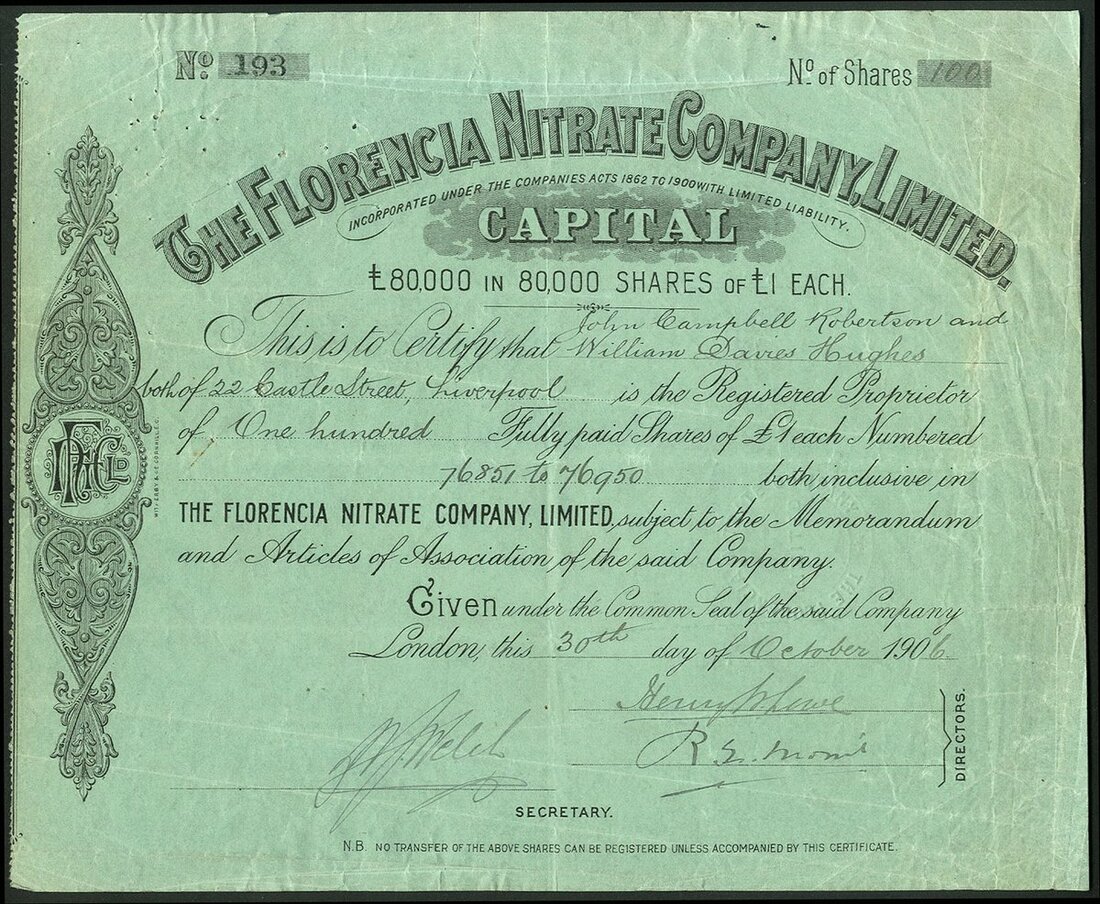 No. 193
No. of Shares 100
THE FLORENCIA NITRATE COMPANY, LIMITED.
INCORPORATED UNDER THE COMPANIES ACTS 1862 TO 1900 WITH LIMITED LIABILITY.
CAPITAL
£80,000 IN 80,000 SHARES OF £1 EACH.
John Campbell Robertson and
This is to Certify that William Davies Hughes
both of 22 Castle Street, Liverpool is the Registered Proprietor
of One hundred Fully paid Shares of £1 each Numbered
76851 to 76950 both inclusive in
THE FLORENCIA NITRATE COMPANY, LIMITED, subject to the Memorandum
and Articles of Association of the said Company.
Given under the Common Seal of the said Company
London, this 30th day of October 1906.
FNCLD
DIRECTORS.
SECRETARY.
N.B. NO TRANSFER OF THE ABOVE SHARES CAN BE REGISTERED UNLESS ACCOMPANIED BY THIS CERTIFICATE.